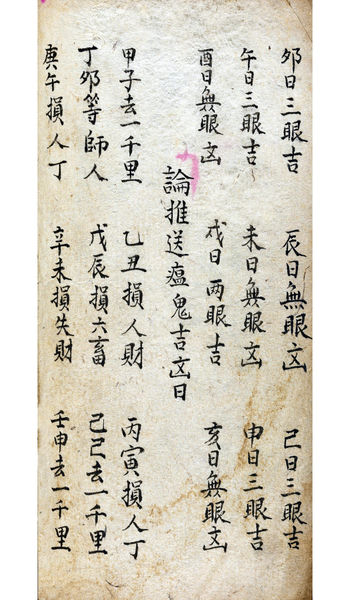 夘日三眼吉 辰日無眼㐫 巳日三眼吉
午日三眼吉 未日無眼㐫 申日三眼吉
酉日無眼㐫 戌日两眼吉 亥日無眼㐫
論推送瘟鬼吉㐫日
甲子去一千里 乙丑損人財 丙寅損人丁
丁夘等師人 戊辰損六畜 己巳去一千里
庚午損人丁 辛未損失財 壬申去一千里